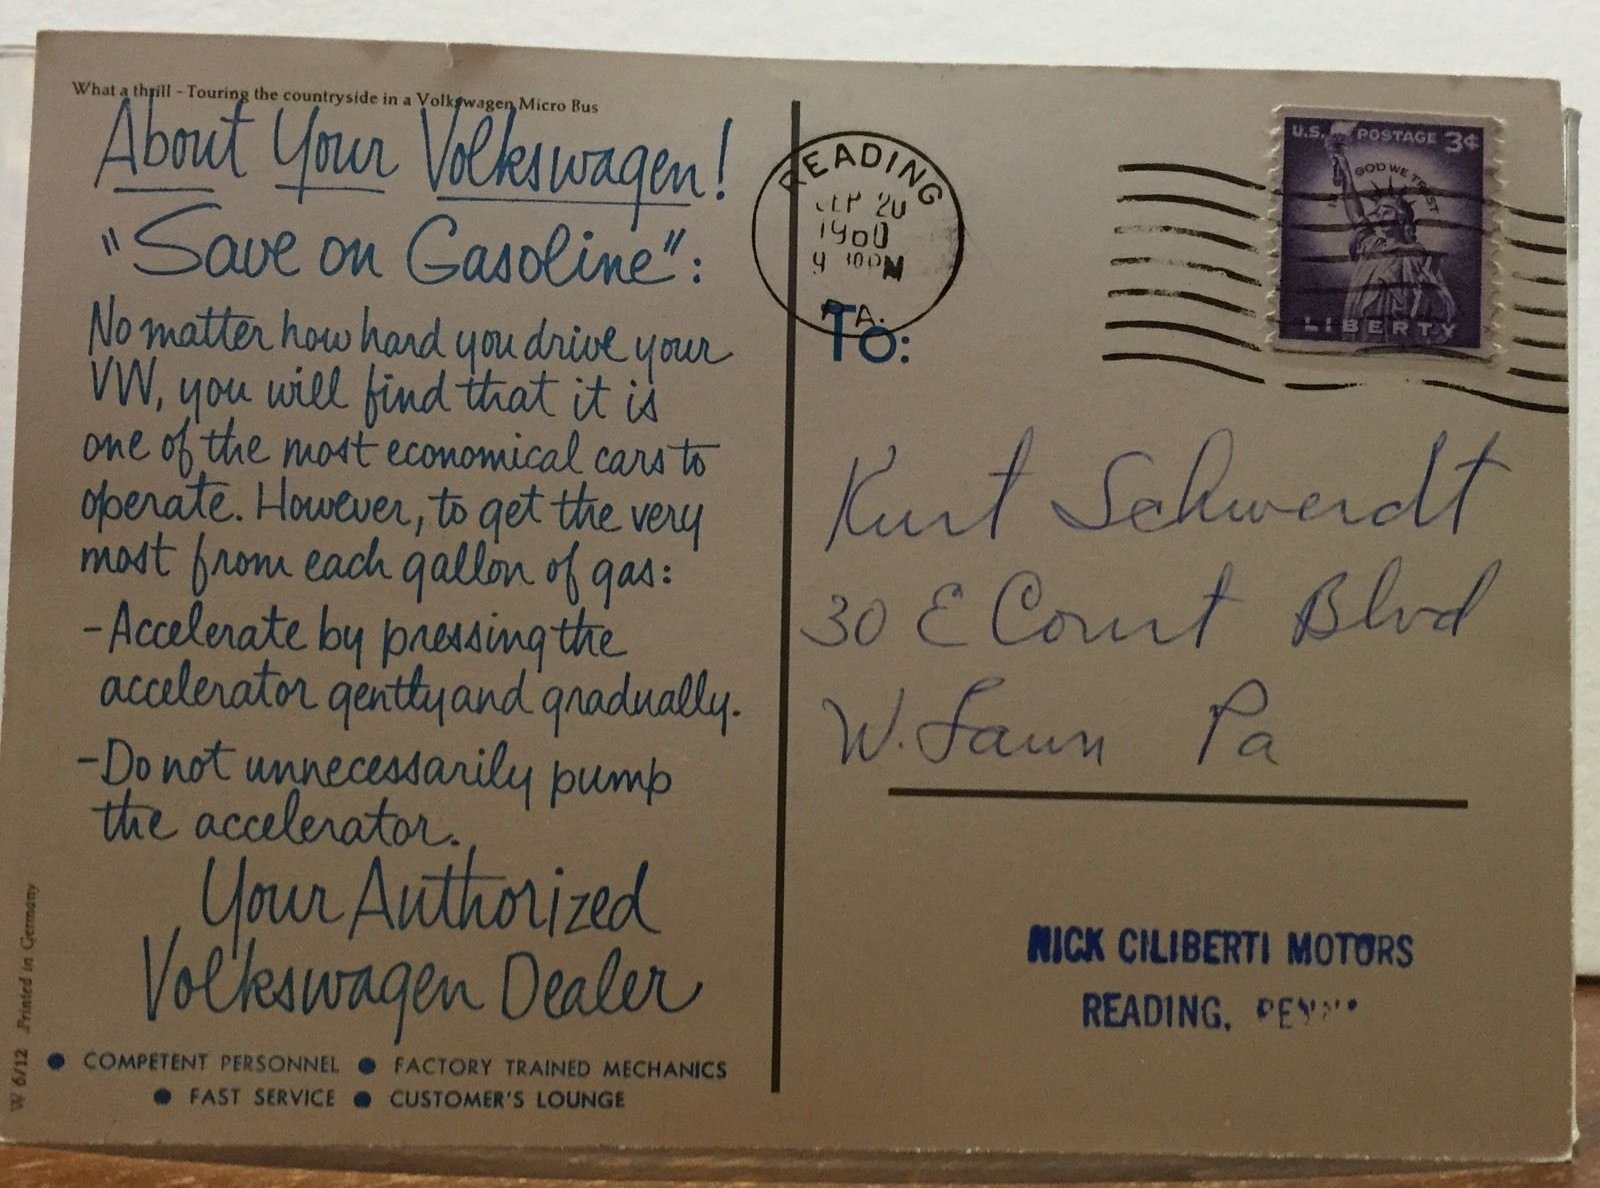 What a thrill - Touring the countryside in a Volkswagen Micro Bus
About Your Volkswagen!
"Save on Gasoline":
No matter how hard you drive your
VW, you will find that it is
one of the most economical cars to
operate. However, to get the very
most from each gallon of gas:
-Accelerate by pressing the
accelerator gently and gradually.
-Do not unnecessarily pump
the accelerator.
Your Authorized
Volkswagen Dealer
• COMPETENT PERSONNEL • FACTORY TRAINED MECHANICS
• FAST SERVICE • CUSTOMER'S LOUNGE
W 6/12 Printed in Germany
READING
SEP 20
1960
PM
PA.
U.S. POSTAGE 3¢
IN GOD WE TRUST
LIBERTY
To:
Kurt Schwerdt
30 E Court Blvd
W. Lawn Pa
NICK CILIBERTI MOTORS
READING, PENN